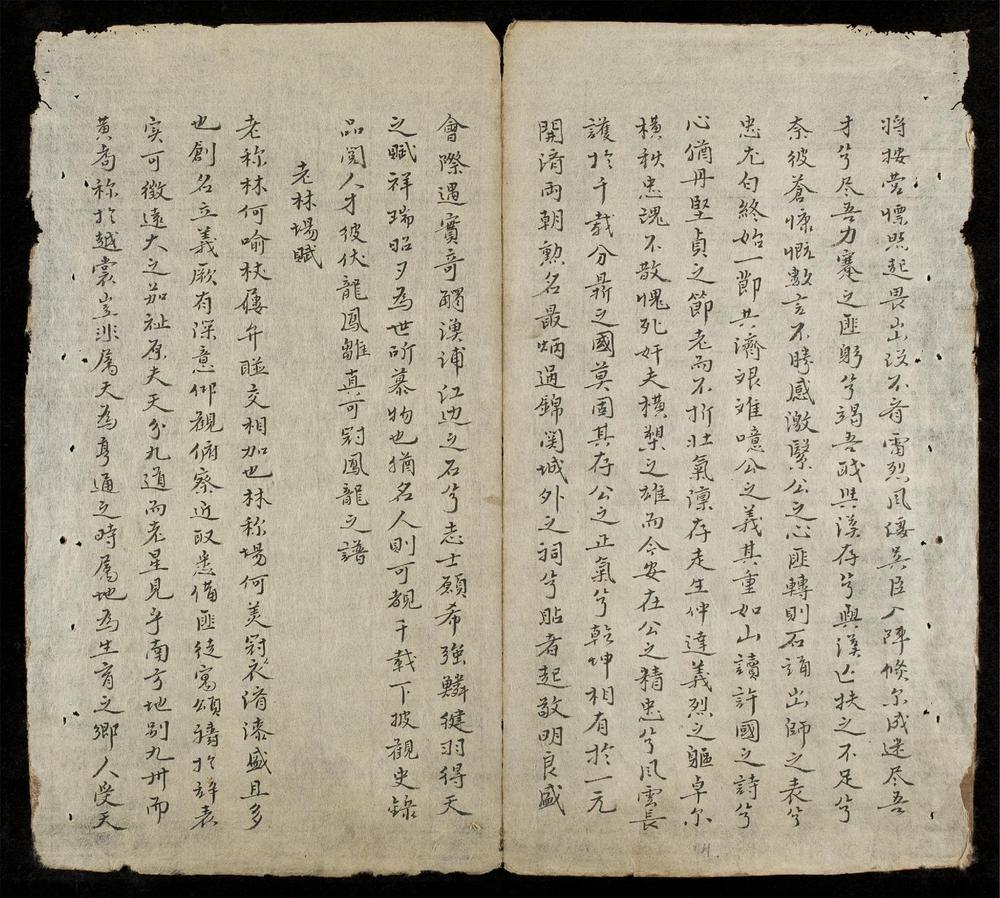 將按营慓㷖起畏出没不啻雷烈風悽吳臣入陣倏尔成迷尽吾
才兮尽吾力蹇之匪躬兮竭吾或與漢存兮與漢亡扶之不足兮
奈彼蒼慷慨数言不勝感激緊公之心匪轉則石誦出師之表兮
忠尤白終始一節共濟艰难噫公之義其重如山讀許國之詩兮
心猶丹堅貞之節老而不折壯氣凜存走生仲達義烈之軀卓尔
橫秋忠魂不散愧死奸夫橫槊之雄而今安在公之精忠兮風雲長
護於千载分鼎之國莫固其存公之正氣兮乾坤相有於一元
開濟兩朝勲名最炳過錦関城外之祠兮贴者起敬明良盛
會際遇實奇酹漢浦江边之石兮志士願希強鱗健羽得天
之賦祥瑞昭夕為世所慕物也猶名人則可覩千载下披觀史錄
品閲人才彼伏龍鳳雛真可冠鳳龍之譜
老林場賦
老称林何喻杖屨弁聮交相加也林称場何美冠衣濟漆盛且多
也創名立義厥有深意仰觀俯察近取悉備匪徒寓頌禱於辞表
实可徵遠大之茄祉原夫天分九道而老星見乎南方地别九州而
黄耇称於越裳豈非属天為亨通之時属地為生育之鄉人受天